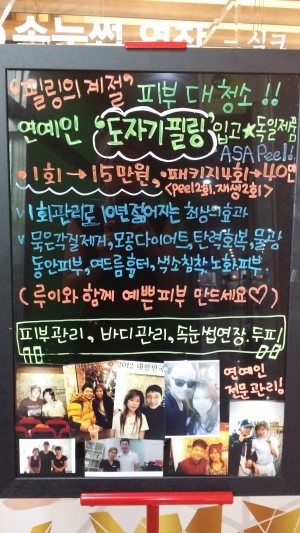 속눈썹 연장
"필링의 계절" 피부 대청소 !!
연예인 "도자기필링" 입고★독일제품
ASA Peel!
•1회→15만원, •패키지4회→40만
<peel2회, 재생2회>
√1회관리로 10년 젊어지는 최상의효과
√묵은각질제거, 모공다이어트, 탄력회복, 물광
동안피부, 여드름흉터, 색소침착, 노화피부.
( 루이와 함께 예쁜피부 만드세요♡)
피부관리, 바디관리, 속눈썹연장. 두피!
2012 대한민국
연예인
전문관리!